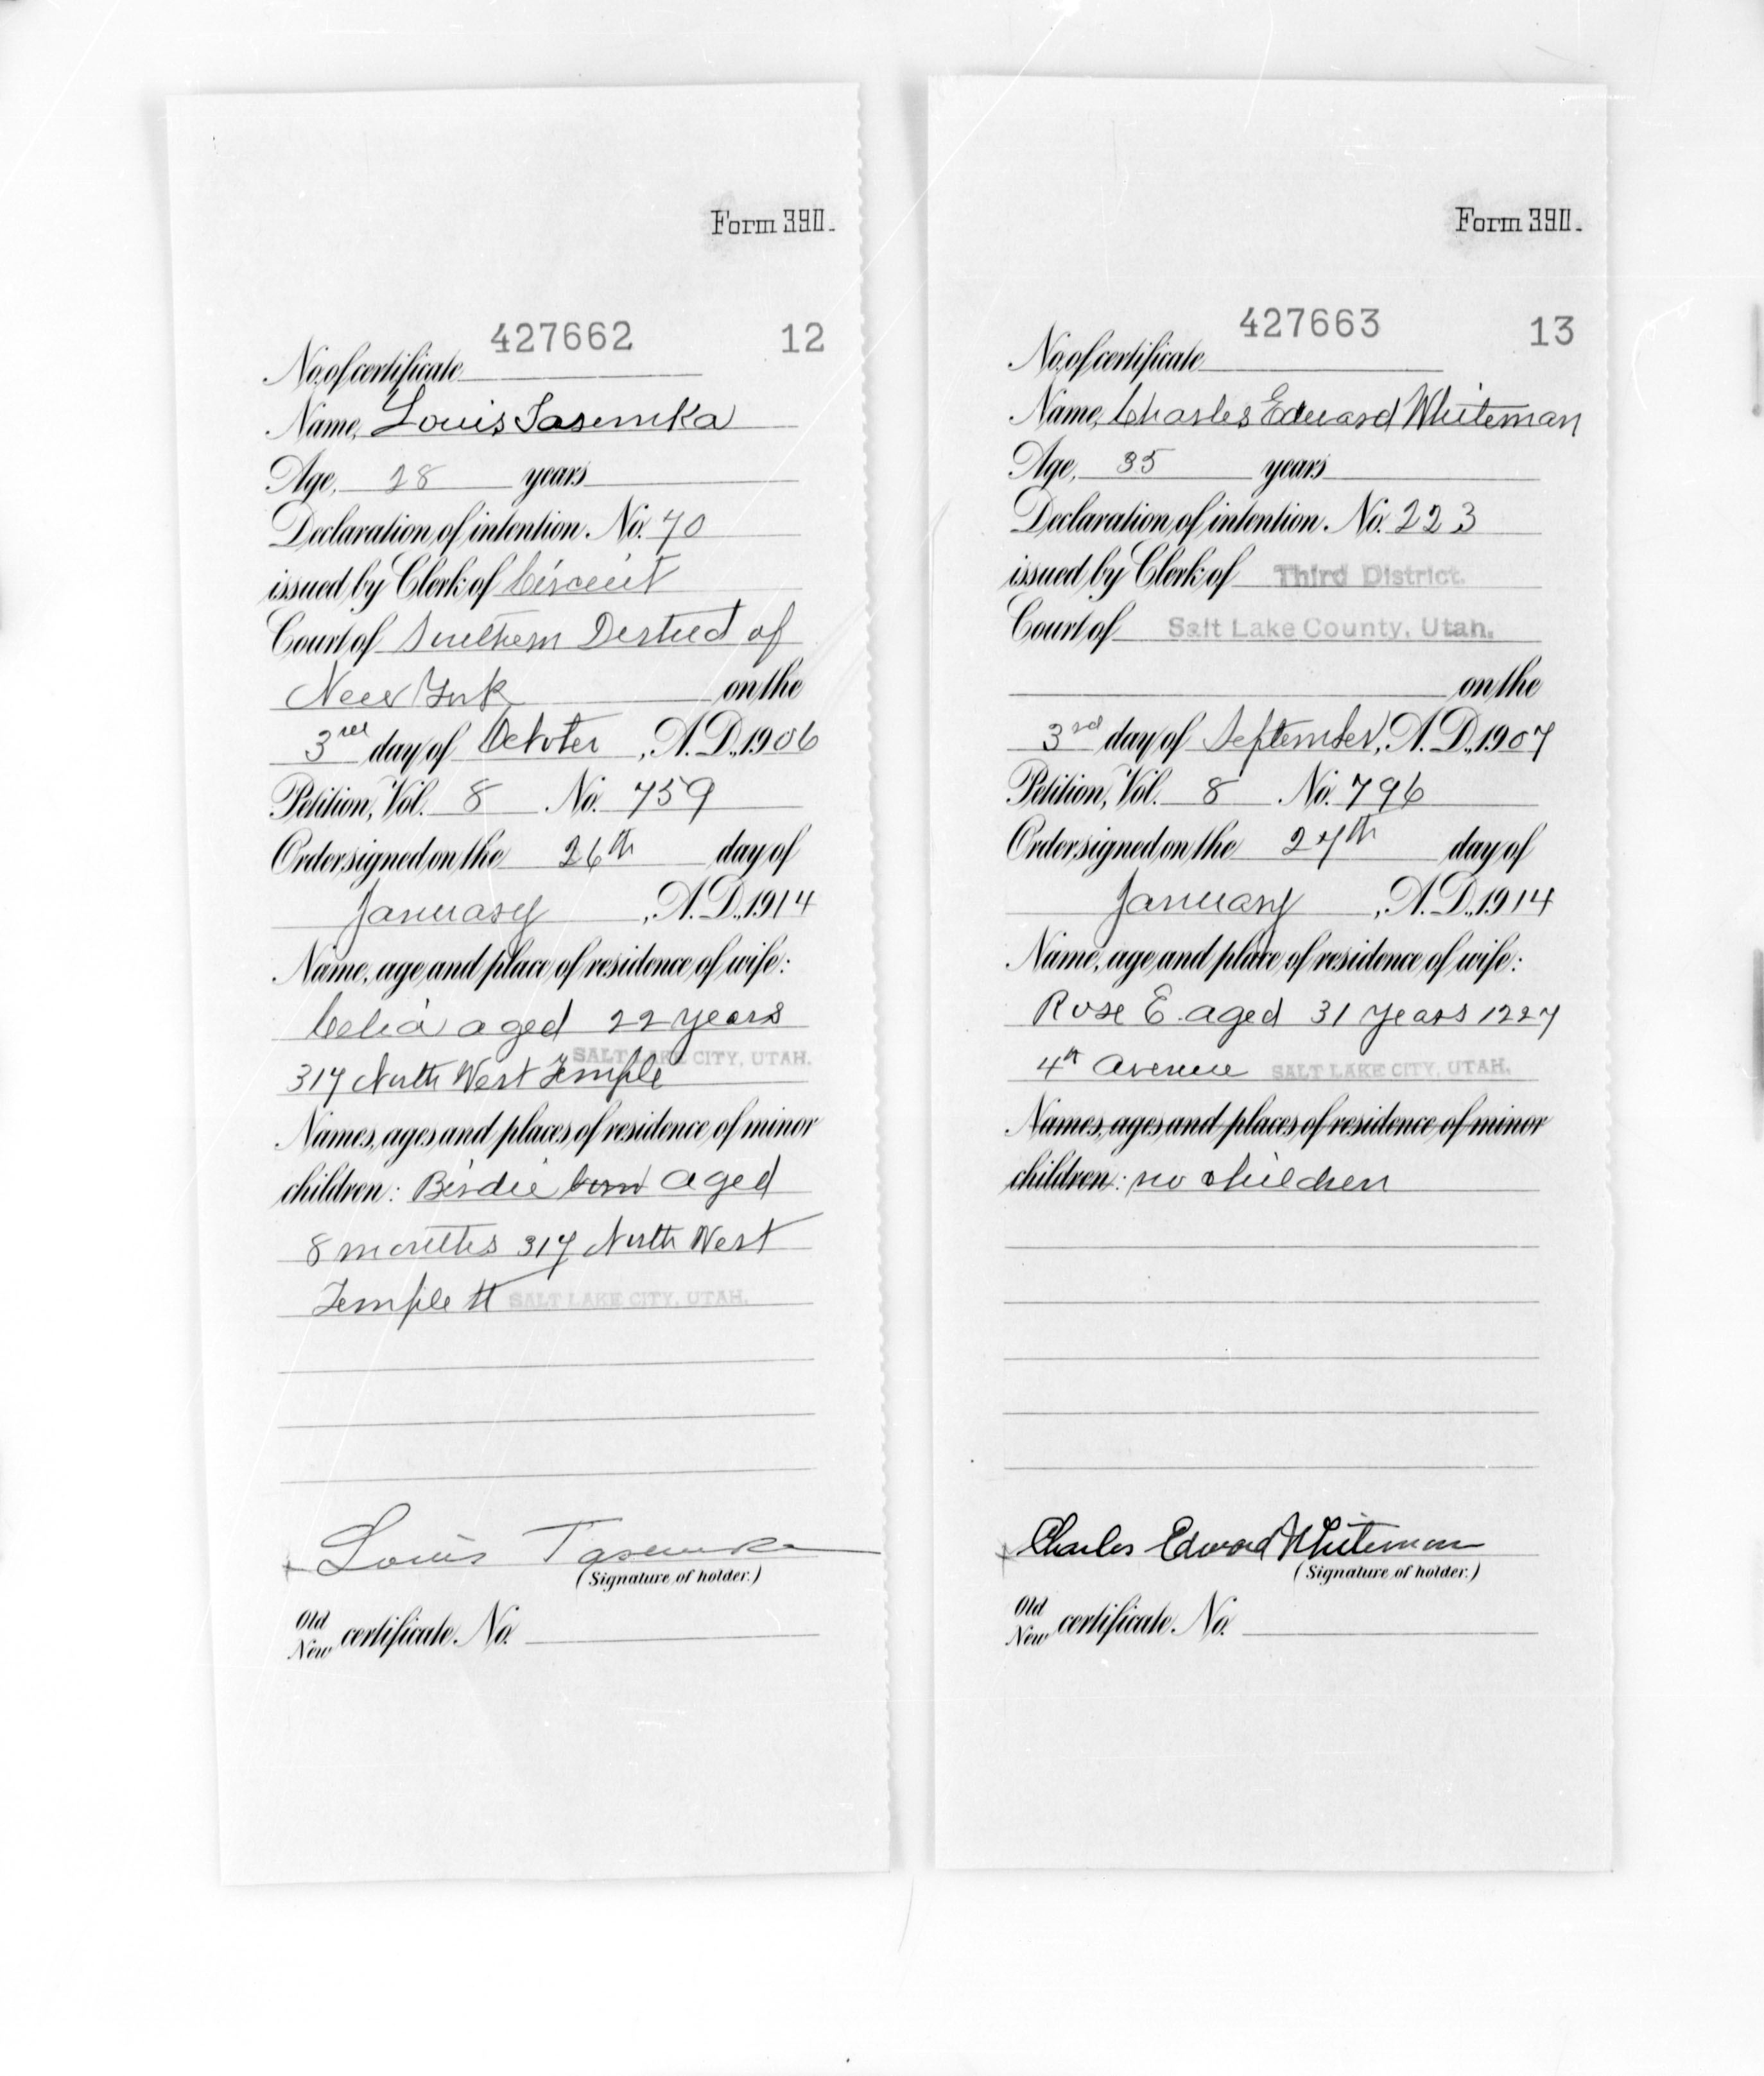 Form 390.
427662 12
No. of certificate
Name, Louis Tasemka
Age, 28 years
Declaration of intention. No. 70
issued by Clerk of Circuit
Court of Southern District of
New York on the
3rd day of October, A.D., 1906
Petition, Vol. 8 No. 759
Order signed on the 26th day of
January, A.D., 1914
Name, age and place of residence of wife:
Celia aged 22 years
SALT LAKE CITY, UTAH.
317 North West Temple
Names, ages and places of residence of minor
children: Birdie born aged
8 months 317 North West
Temple st SALT LAKE CITY, UTAH.
Louis Tasemka
(Signature of holder.)
Old
New certificate. No.
Form 390.
427663 13
No. of certificate
Name, Charles Edward Whiteman
Age, 35 years
Declaration of intention. No. 223
issued by Clerk of Third District
Court of Salt Lake County, Utah.
on the
3rd day of September, A.D., 1907
Petition, Vol. 8 No. 796
Order signed on the 27th day of
January, A.D., 1914
Name, age and place of residence of wife:
Rose E. aged 31 years 1227
4th Avenue SALT LAKE CITY, UTAH.
Names, ages and places of residence of minor
children: no children
Charles Edward Whiteman
(Signature of holder.)
Old
New certificate. No.